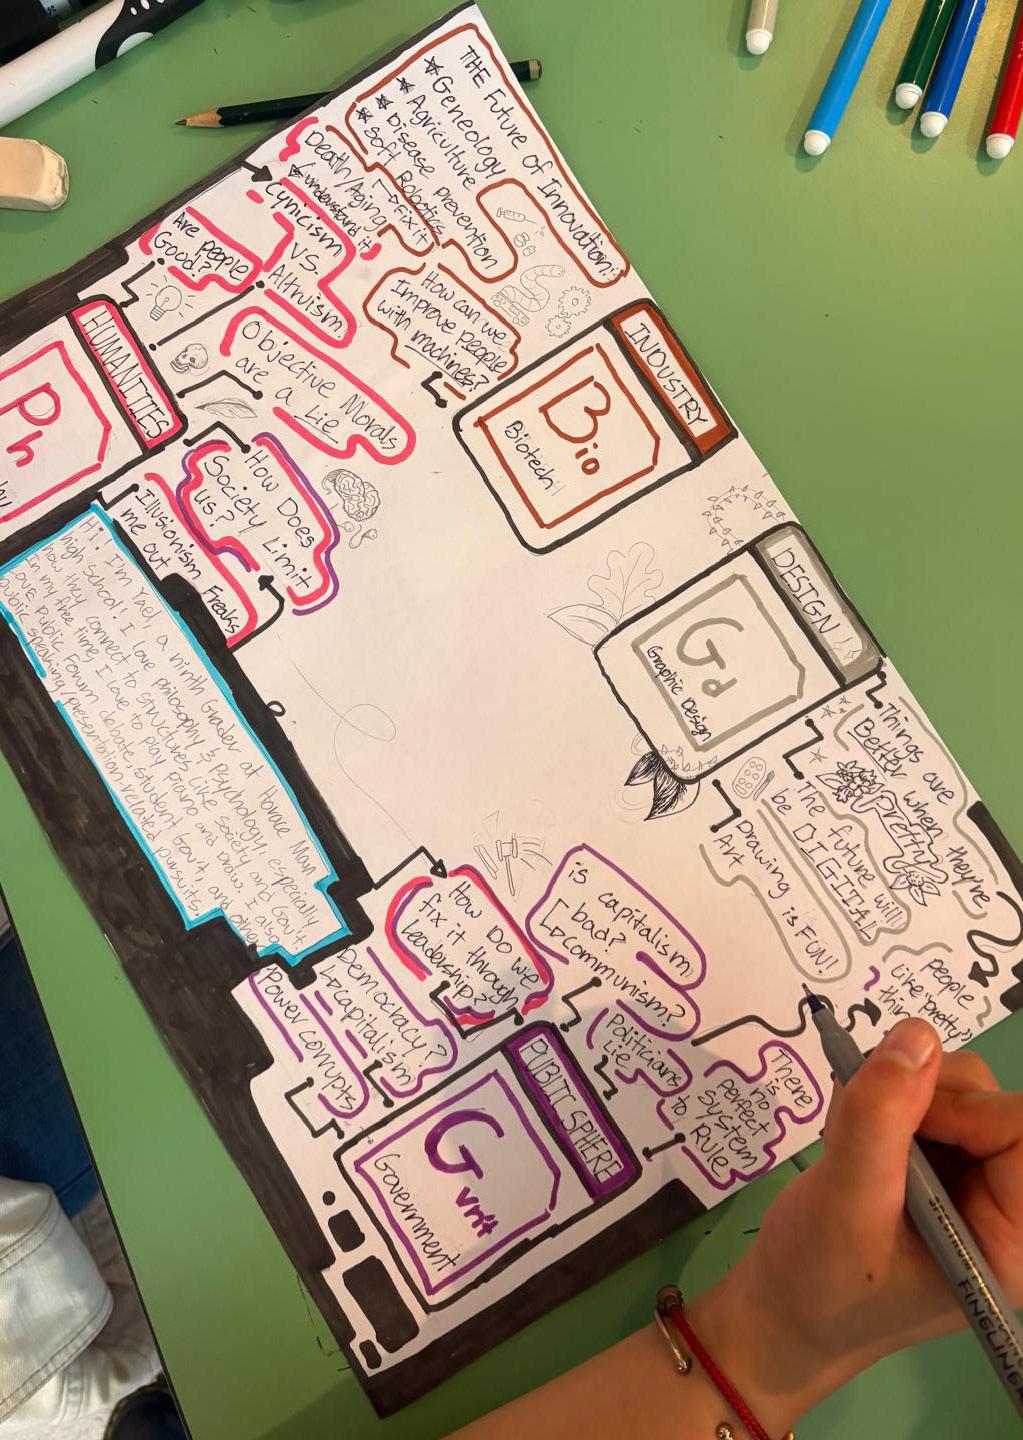 THE Future of Innovation!
Geneology
Agriculture
Disease prevention
Soft Robotics
Death/Aging
Fix it
understand it
Cynicism
vs.
Altruism
Are people
Good?
HUMANITIES
Ph
Objective Morals
are a Lie
How can we
Improve people
with machines?
INDUSTRY
Bio
Biotech
How Does
Society Limit
us?
Illusionism Freaks
me out
Hi! I'm Yael, a ninth Grader at Horace Man
high School! I love philosophy & Psychology, especially
how they connect to structures like Society and Gov't.
In my free time, I love to play piano and draw. I also
love Public Forum debate, student Gov't, and other
public speaking/presentation related pursuits.
DESIGN
Gd
Graphic Design
Things are
Better when they're
pretty
The future will
be DIGITAL
Drawing is FUN!
Art
people
like "pretty"
How Do we
fix it through
leadership?
is capitalism
bad?
communism?
Democracy?
capitalism
Power corrupts
Politicians
Lie
to
There
is no
perfect
System
Rule
PUBLIC SPHERE
Gvnt
Government
FINELINER